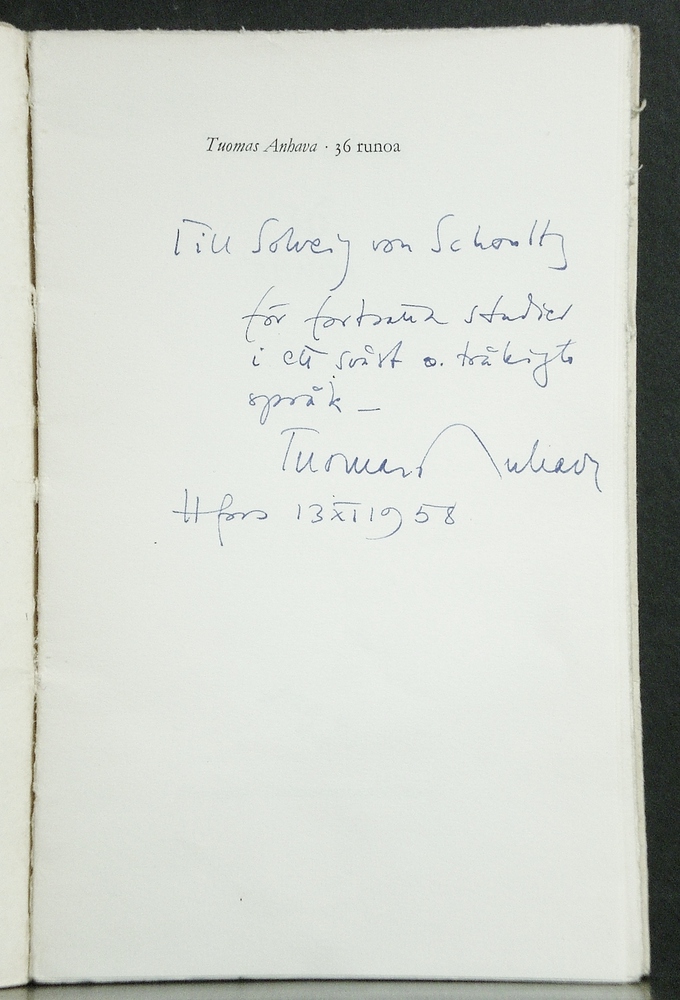 Tuomas Anhava · 36 runoa
Till Solveig von Schoultz
för fortsatta studier
i ett svårt o. tråkigt
språk –
Tuomas Anhava
Hfors 13 XI 1958